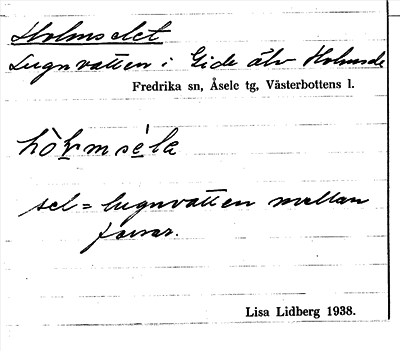 Holmselet
Lugnvatten i Gide älv Holmsele
Fredrika sn, Åsele tg, Västerbottens l.
hòḷmséla
sel = lugnvatten mellan
forsar.
Lisa Lidberg 1938.